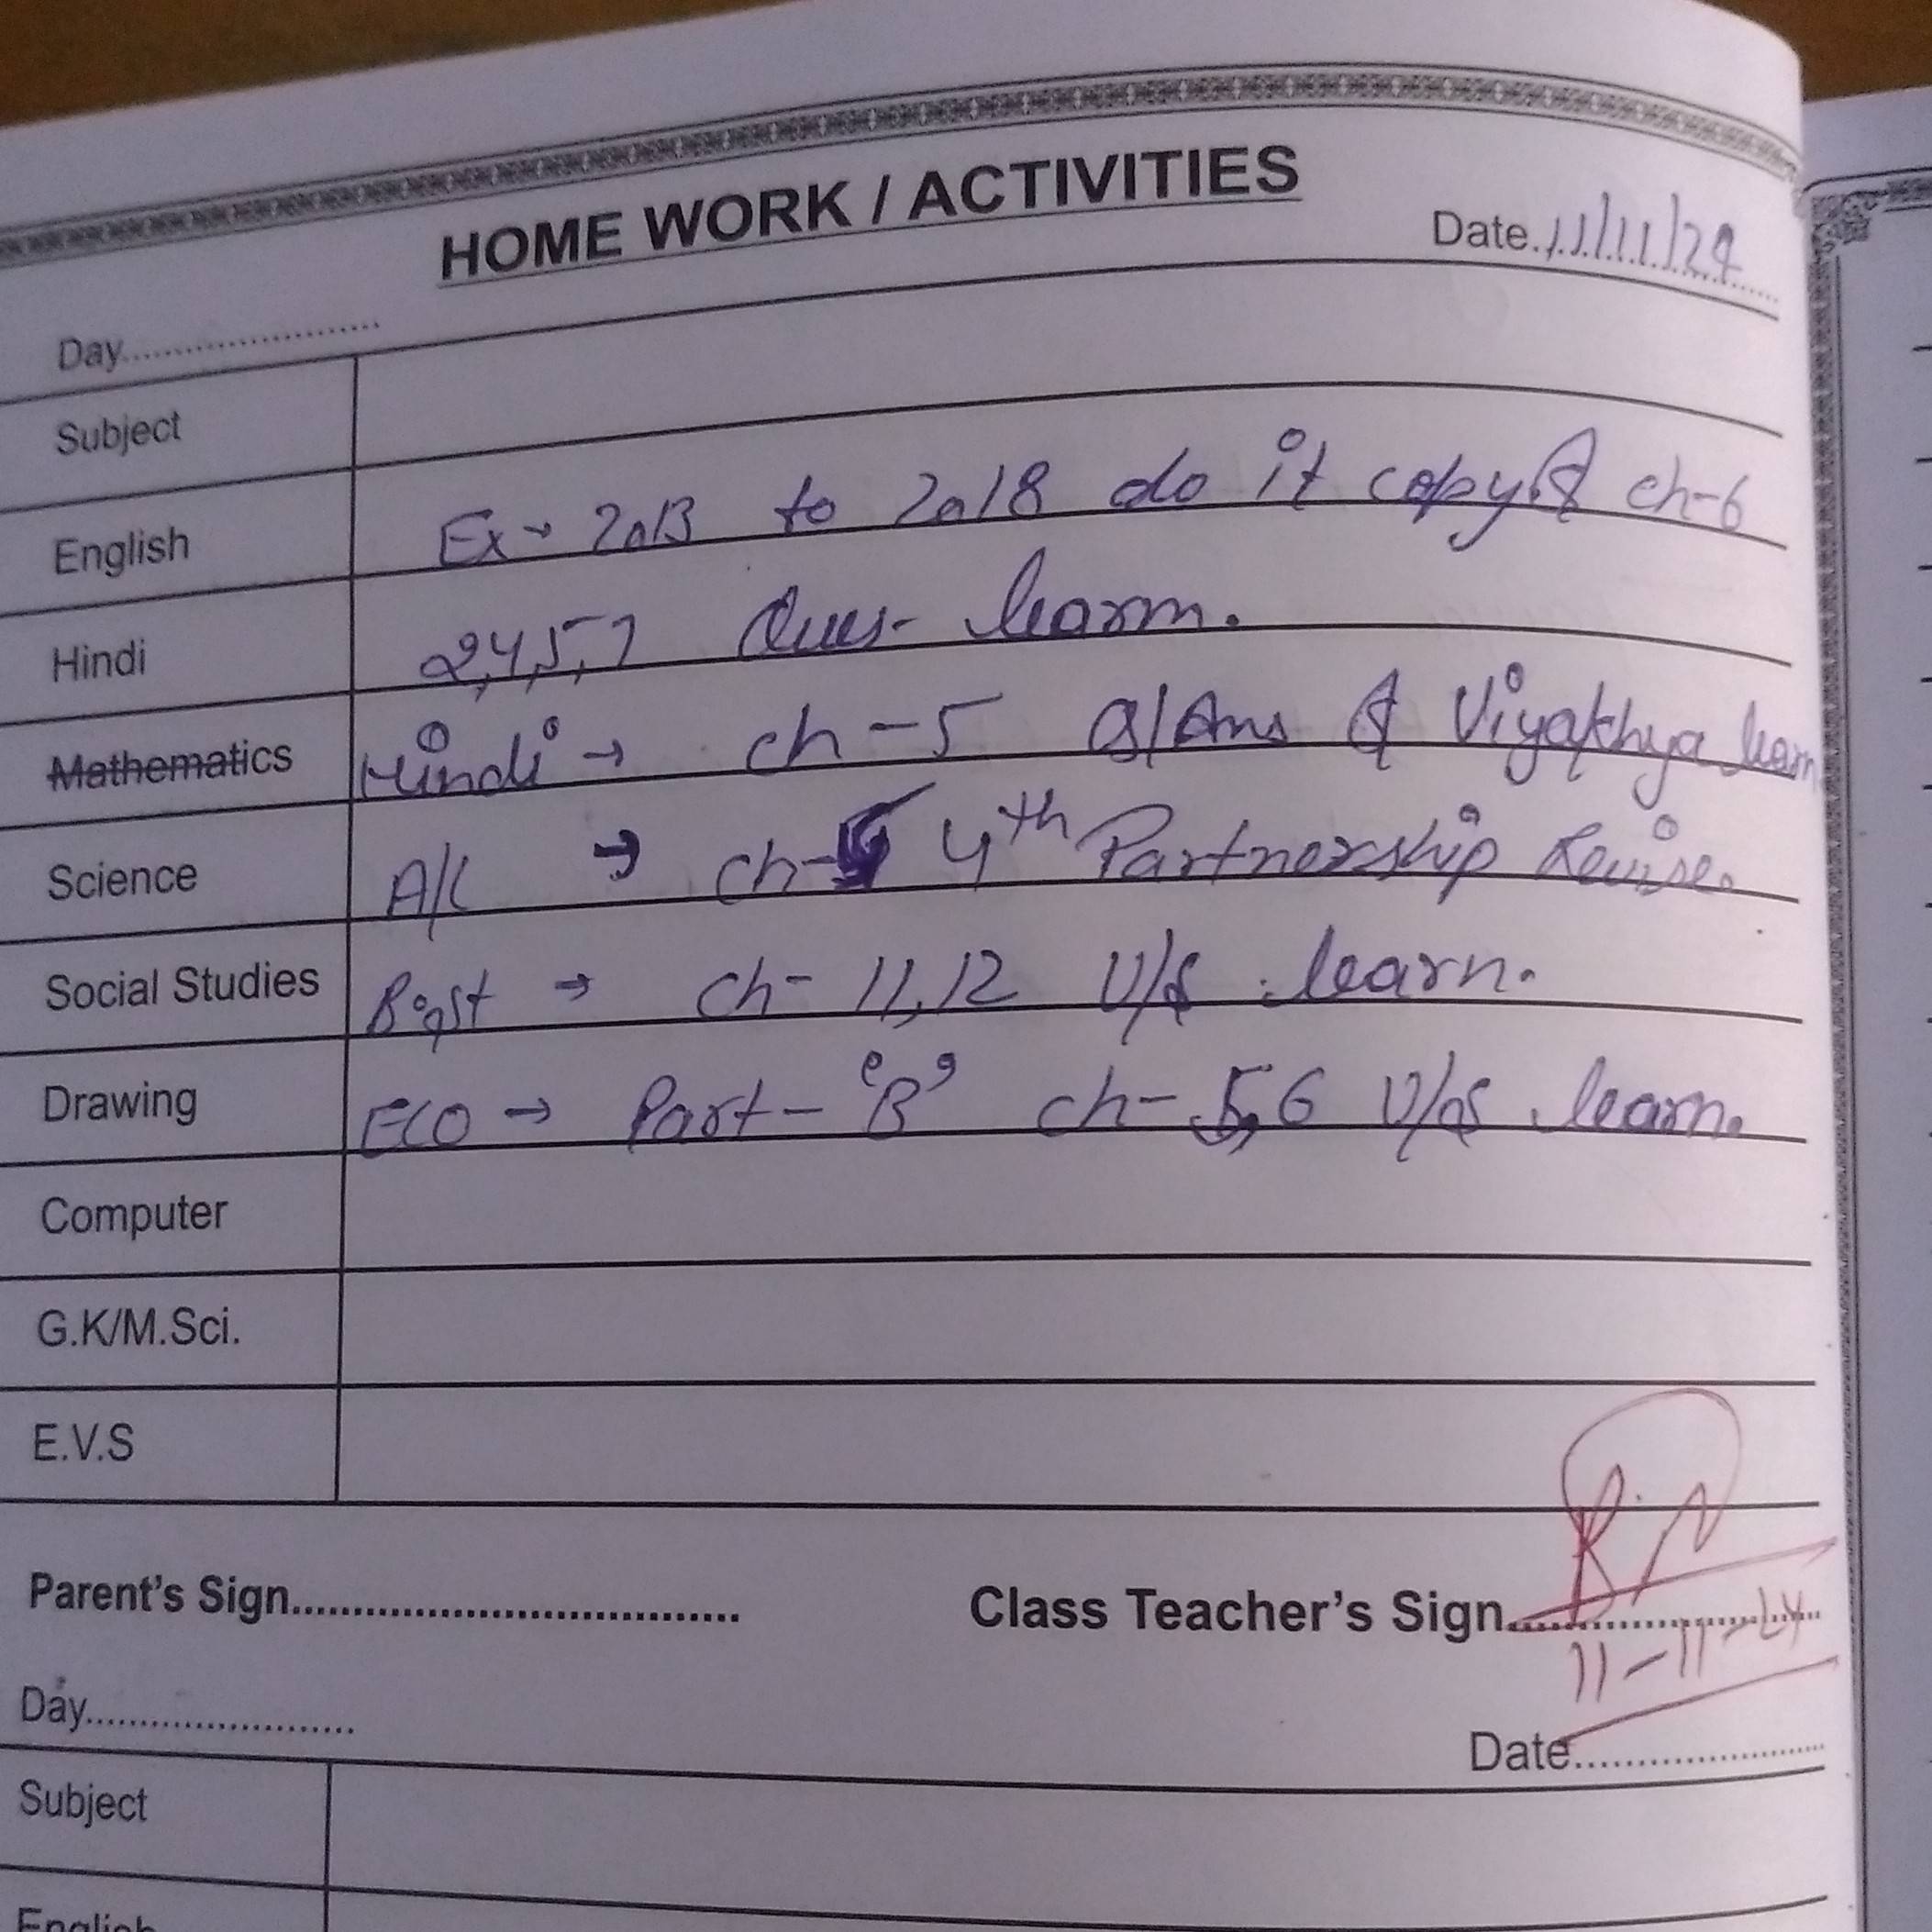 HOME WORK / ACTIVITIES
Day........................ Date. 11/11/24
Subject
English Ex → 2013 to 2018 do it copy & ch-6
Hindi 2,4,5,7 Ques- learn.
Mathematics Hindi → ch-5 Q/Ans & Viyakhya learn
Science A/C → ch- 4th Partnership Revise.
Social Studies B.st → ch- 11,12 V/S learn.
Drawing ECO → Part- 'B' ch- 5,6 learn.
Computer
G.K/M.Sci.
E.V.S
Parent's Sign................................. Class Teacher's Sign.....................
11-11-24
Day........................ Date........................
Subject
English